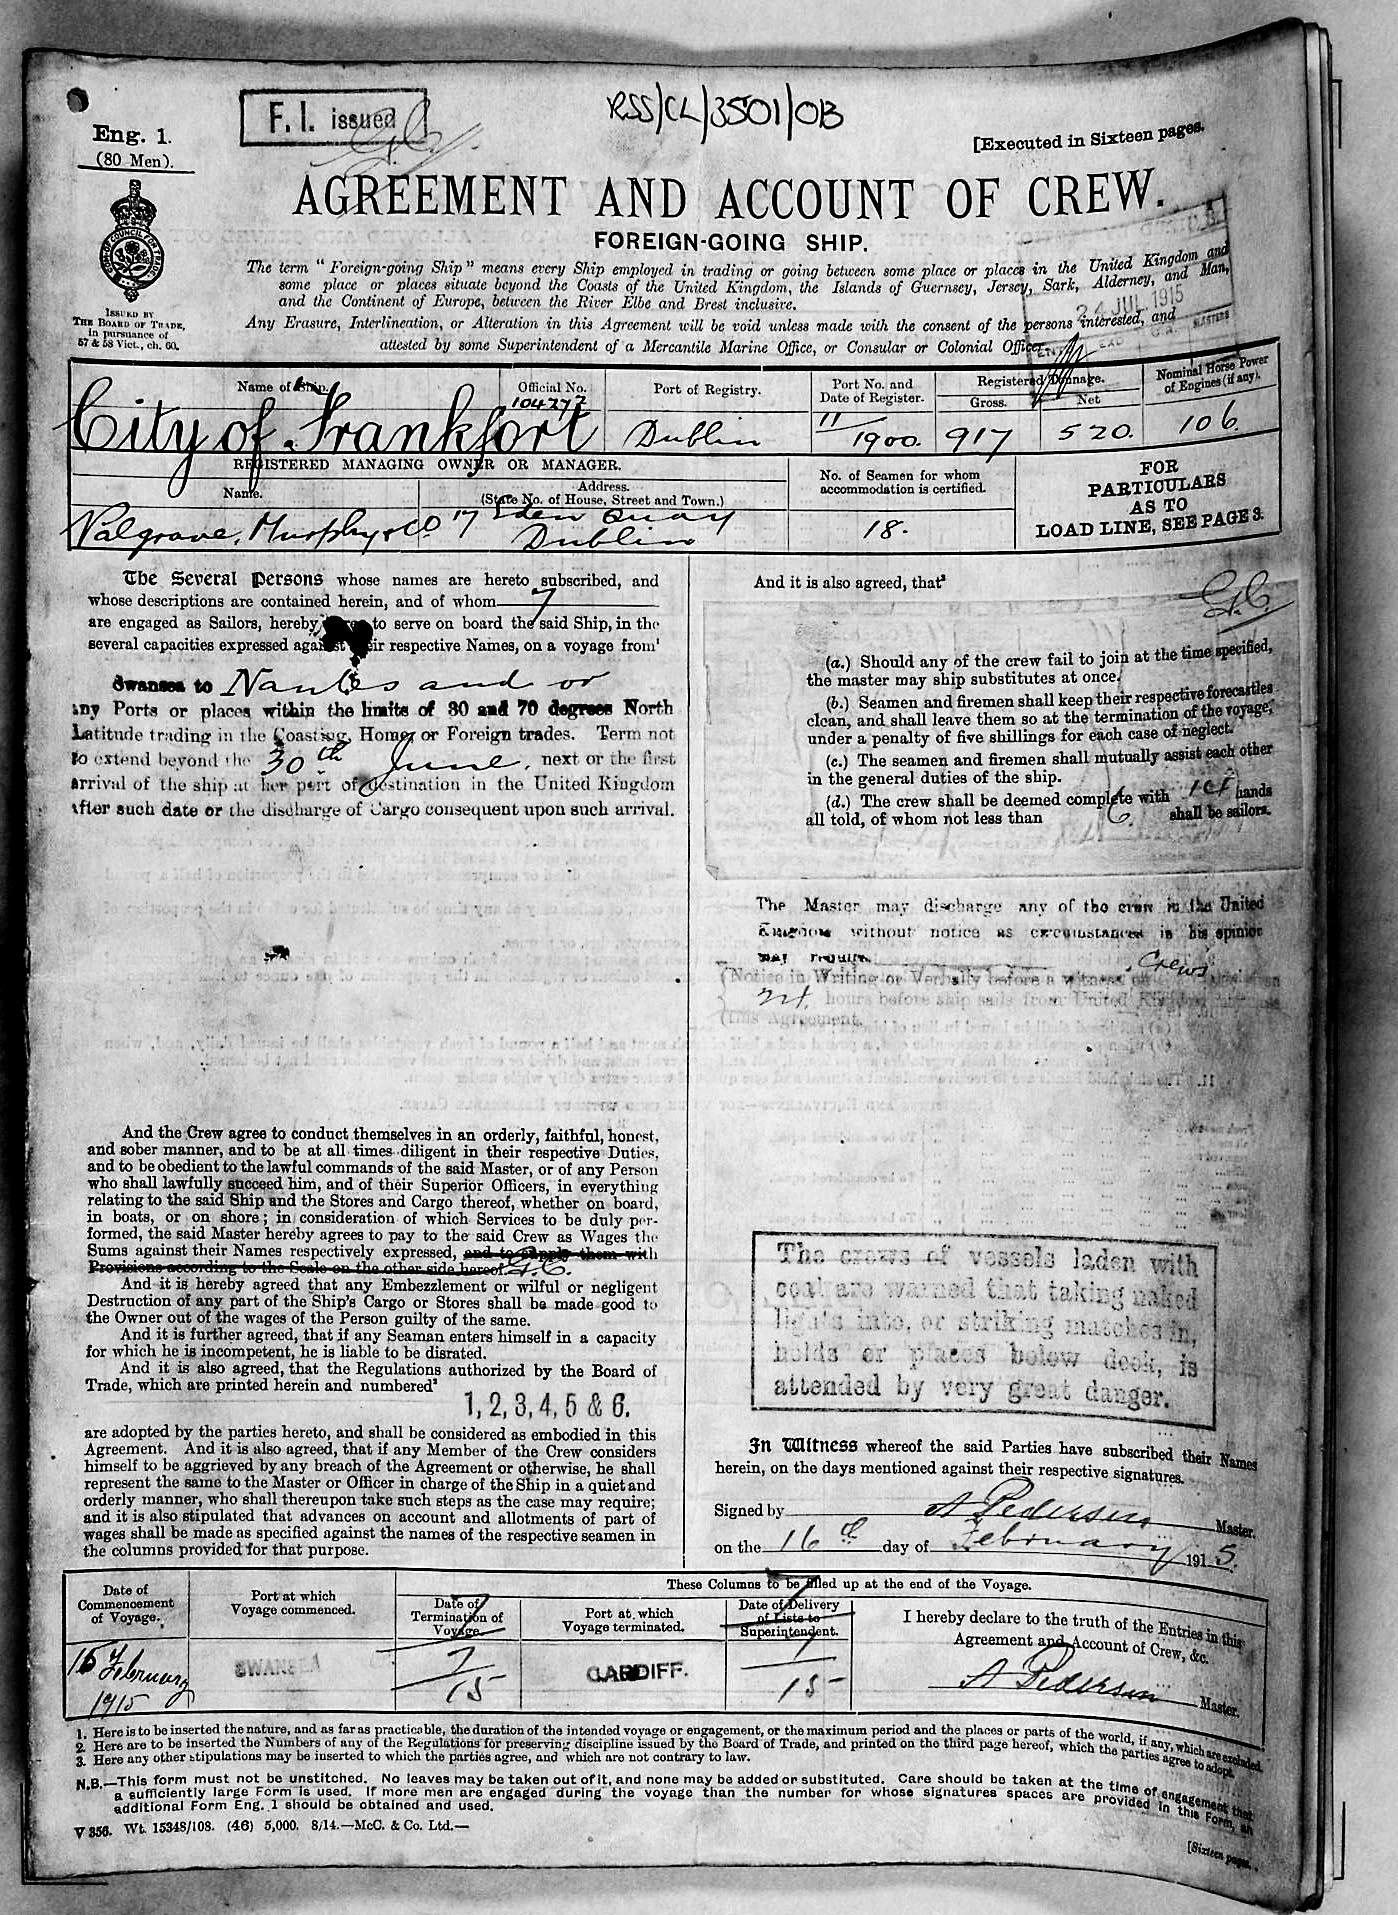 F. I. issued
RSS/CL/3501/0B
Eng. 1.
(80 Men).
[Executed in Sixteen pages.
AGREEMENT AND ACCOUNT OF CREW.
FOREIGN-GOING SHIP.
ISSUED BY
THE BOARD OF TRADE,
in pursuance of
57 & 58 Vict., ch. 60.
The term "Foreign-going Ship" means every Ship employed in trading or going between some place or places in the United Kingdom and
some place or places situate beyond the Coasts of the United Kingdom, the Islands of Guernsey, Jersey, Sark, Alderney, and Man,
and the Continent of Europe, between the River Elbe and Brest inclusive.
24 JUL 1915
Any Erasure, Interlineation, or Alteration in this Agreement will be void unless made with the consent of the persons interested, and
attested by some Superintendent of a Mercantile Marine Office, or Consular or Colonial Officer.
Name of Ship.
City of Frankfort
Official No.
104272
Port of Registry.
Dublin
Port No. and
Date of Register.
11/1900.
Registered Tonnage.
Gross.
917
Net
520.
Nominal Horse Power
of Engines (if any).
106.
REGISTERED MANAGING OWNER OR MANAGER.
Name.
Palgrave, Murphy & Co
Address.
(State No. of House, Street and Town.)
17 Eden Quay
Dublin
No. of Seamen for whom
accommodation is certified.
18.
FOR
PARTICULARS
AS TO
LOAD LINE, SEE PAGE 3.
The Several Persons whose names are hereto subscribed, and
whose descriptions are contained herein, and of whom 7
are engaged as Sailors, hereby to serve on board the said Ship, in the
several capacities expressed against their respective Names, on a voyage from¹
Swansea to Nantes and or
any Ports or places within the limits of 30 and 70 degrees North
Latitude trading in the Coasting, Home or Foreign trades. Term not
to extend beyond the 30th June, next or the first
arrival of the ship at her port of destination in the United Kingdom
after such date or the discharge of Cargo consequent upon such arrival.
And the Crew agree to conduct themselves in an orderly, faithful, honest,
and sober manner, and to be at all times diligent in their respective Duties,
and to be obedient to the lawful commands of the said Master, or of any Person
who shall lawfully succeed him, and of their Superior Officers, in everything
relating to the said Ship and the Stores and Cargo thereof, whether on board,
in boats, or on shore; in consideration of which Services to be duly per-
formed, the said Master hereby agrees to pay to the said Crew as Wages the
Sums against their Names respectively expressed, and to supply them with
Provisions according to the Scale on the other side hereof. G.C.
And it is hereby agreed that any Embezzlement or wilful or negligent
Destruction of any part of the Ship's Cargo or Stores shall be made good to
the Owner out of the wages of the Person guilty of the same.
And it is further agreed, that if any Seaman enters himself in a capacity
for which he is incompetent, he is liable to be disrated.
And it is also agreed, that the Regulations authorized by the Board of
Trade, which are printed herein and numbered²
1, 2, 3, 4, 5 & 6.
are adopted by the parties hereto, and shall be considered as embodied in this
Agreement. And it is also agreed, that if any Member of the Crew considers
himself to be aggrieved by any breach of the Agreement or otherwise, he shall
represent the same to the Master or Officer in charge of the Ship in a quiet and
orderly manner, who shall thereupon take such steps as the case may require;
and it is also stipulated that advances on account and allotments of part of
wages shall be made as specified against the names of the respective seamen in
the columns provided for that purpose.
And it is also agreed, that³
G.C.
(a.) Should any of the crew fail to join at the time specified,
the master may ship substitutes at once.
(b.) Seamen and firemen shall keep their respective forecastles
clean, and shall leave them so at the termination of the voyage,
under a penalty of five shillings for each case of neglect.
(c.) The seamen and firemen shall mutually assist each other
in the general duties of the ship.
(d.) The crew shall be deemed complete with 14 hands
all told, of whom not less than 6. shall be sailors.
The Master may discharge any of the crew in the United
Kingdom without notice as circumstances in his opinion
may require.
Crew's
(Notice in Writing or Verbally before a witness
24 hours before ship sails from United Kingdom
(this Agreement.
The crews of vessels laden with
coal are warned that taking naked
lights into, or striking matches in,
holds or places below deck, is
attended by very great danger.
In Witness whereof the said Parties have subscribed their Names
herein, on the days mentioned against their respective signatures.
Signed by A Pedersen Master.
on the 16th day of February 1915.
Date of
Commencement
of Voyage.
16 February
1915
Port at which
Voyage commenced.
SWANSEA
These Columns to be filled up at the end of the Voyage.
Date of
Termination of
Voyage.
7/15
Port at which
Voyage terminated.
CARDIFF.
Date of Delivery
of Lists to
Superintendent.
7/15
I hereby declare to the truth of the Entries in this
Agreement and Account of Crew, &c.
A Pedersen Master.
1. Here is to be inserted the nature, and as far as practicable, the duration of the intended voyage or engagement, or the maximum period and the places or parts of the world, if any, which are excluded.
2. Here are to be inserted the Numbers of any of the Regulations for preserving discipline issued by the Board of Trade, and printed on the third page hereof, which the parties agree to adopt.
3. Here any other stipulations may be inserted to which the parties agree, and which are not contrary to law.
N.B.—This form must not be unstitched. No leaves may be taken out of it, and none may be added or substituted. Care should be taken at the time of engagement that
a sufficiently large Form is used. If more men are engaged during the voyage than the number for whose signatures spaces are provided in this Form, an
additional Form Eng. 1 should be obtained and used.
V 356. Wt. 15348/108. (46) 5,000. 8/14.—McC. & Co. Ltd.—
[Sixteen pages.